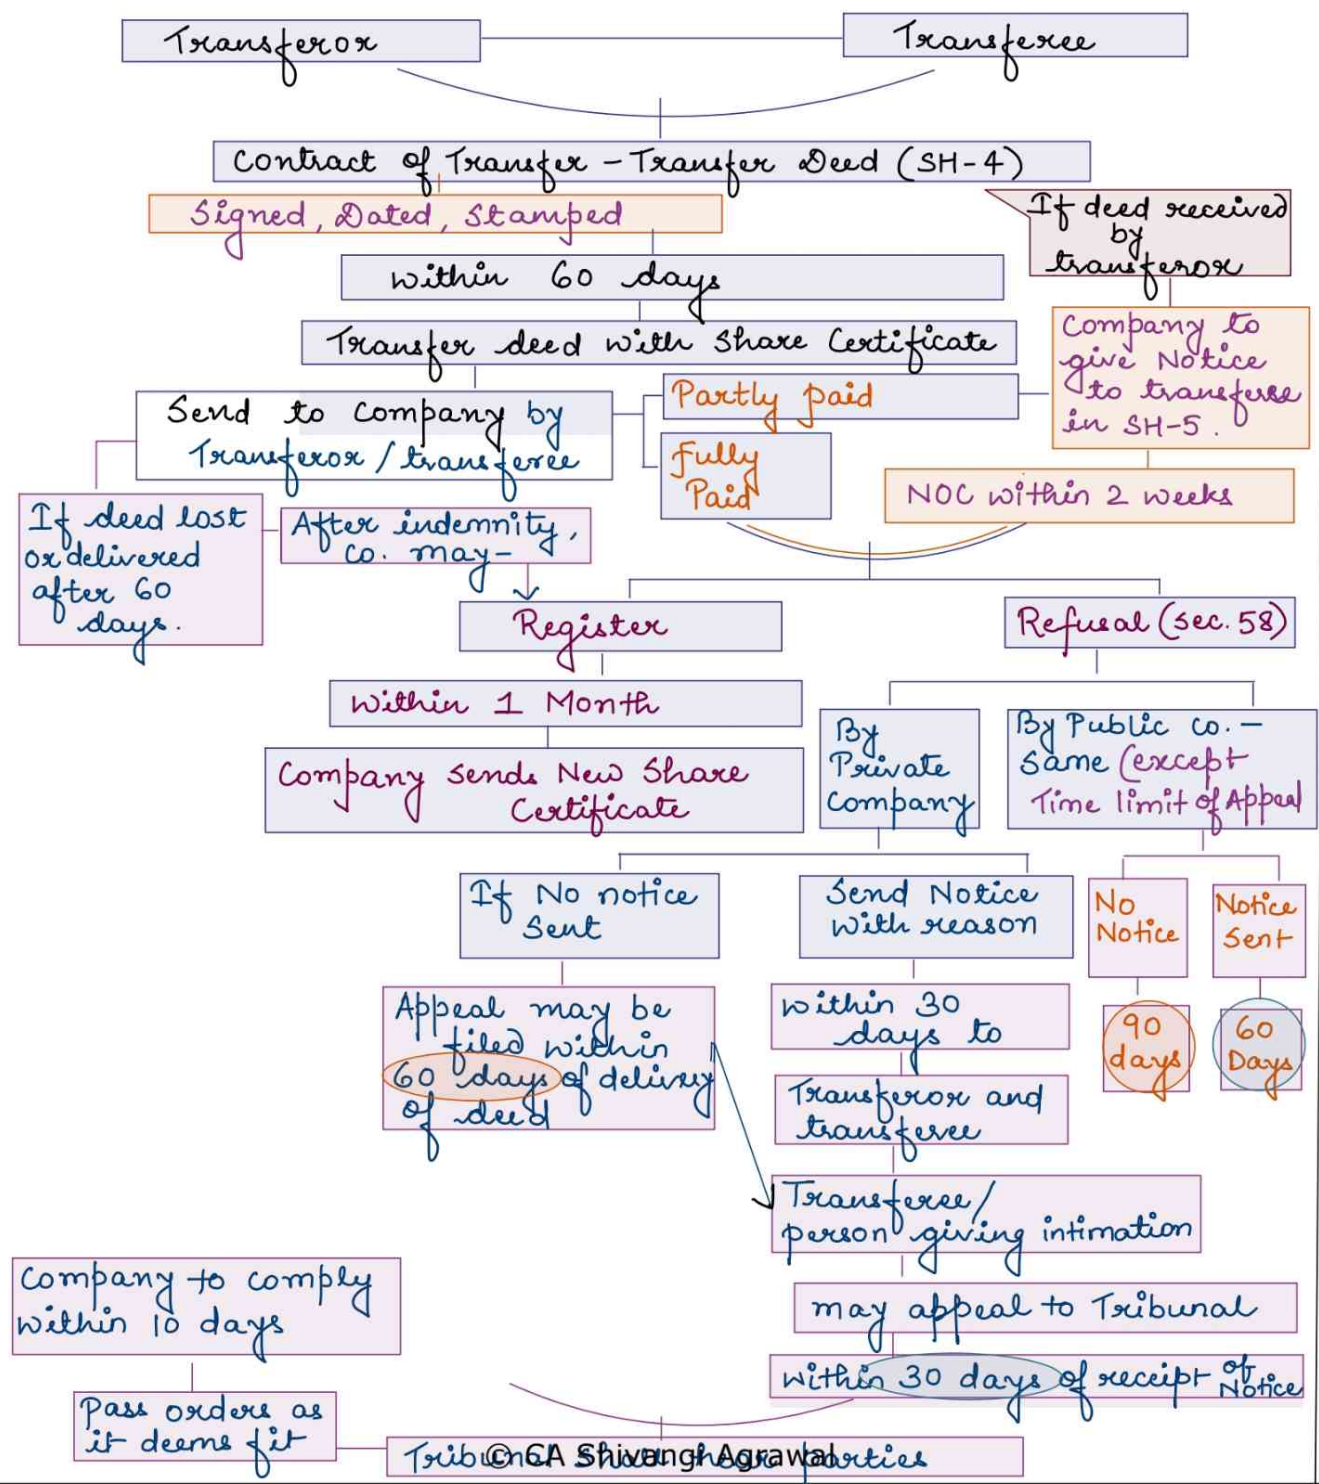 Transferor
Transferee
Contract of Transfer - Transfer Deed (SH-4)
Signed, Dated, Stamped
If deed received
by
transferor
within 60 days
Transfer deed with Share Certificate
Company to
give Notice
to transferee
in SH-5.
Send to Company by
Transferor/transferee
Partly paid
Fully
Paid
NOC within 2 weeks
If deed lost
or delivered
after 60
days.
After indemnity,
co. may-
Register
Refusal (sec. 58)
within 1 Month
Company sends New Share
Certificate
By
Private
Company
By Public co. -
Same (except
Time limit of Appeal
If No notice
Sent
Send Notice
with reason
No
Notice
Notice
Sent
Appeal may be
filed within
60 days of delivery
of deed
within 30
days to
90
days
60
Days
Transferor and
transferee
Transferee/
person giving intimation
may appeal to Tribunal
within 30 days of receipt of
Notice
Company to comply
within 10 days
Pass orders as
it deems fit
Tribunal shall hear parties
© CA Shivangi Agrawal